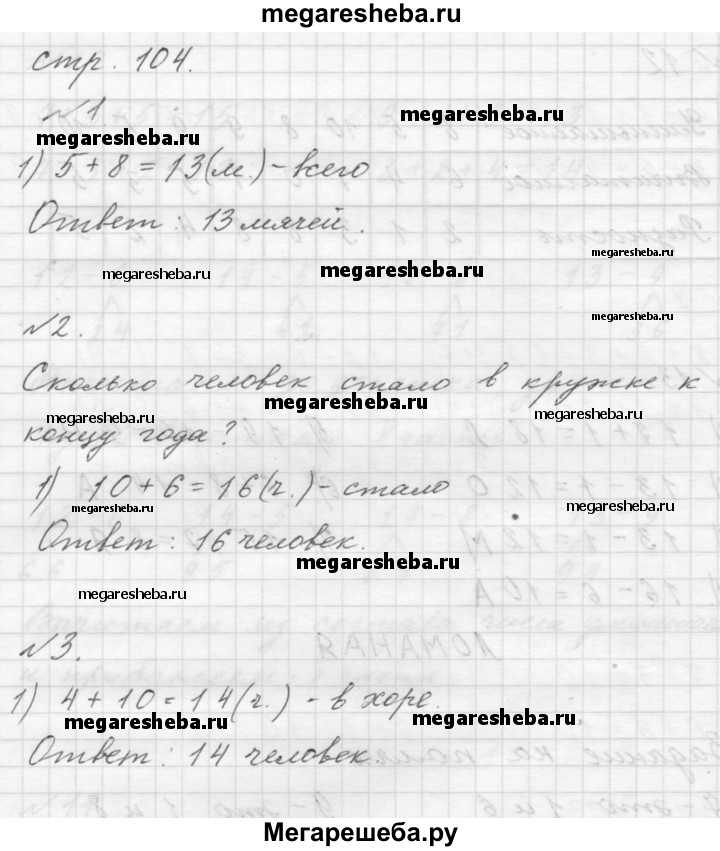 megaresheba.ru
стр. 104.
№1
megaresheba.ru
megaresheba.ru
1) 5 + 8 = 13 (м.) - всего
Ответ : 13 мячей.
megaresheba.ru
megaresheba.ru
megaresheba.ru
№2.
megaresheba.ru
Сколько человек стало в кружке к
megaresheba.ru
megaresheba.ru
megaresheba.ru
концу года?
1) 10 + 6 = 16 (ч.) - стало
megaresheba.ru
megaresheba.ru
Ответ : 16 человек.
megaresheba.ru
megaresheba.ru
№3.
1) 4 + 10 = 14 (ч.) - в хоре.
megaresheba.ru
megaresheba.ru
Ответ : 14 человек.
Мегарешеба.ру